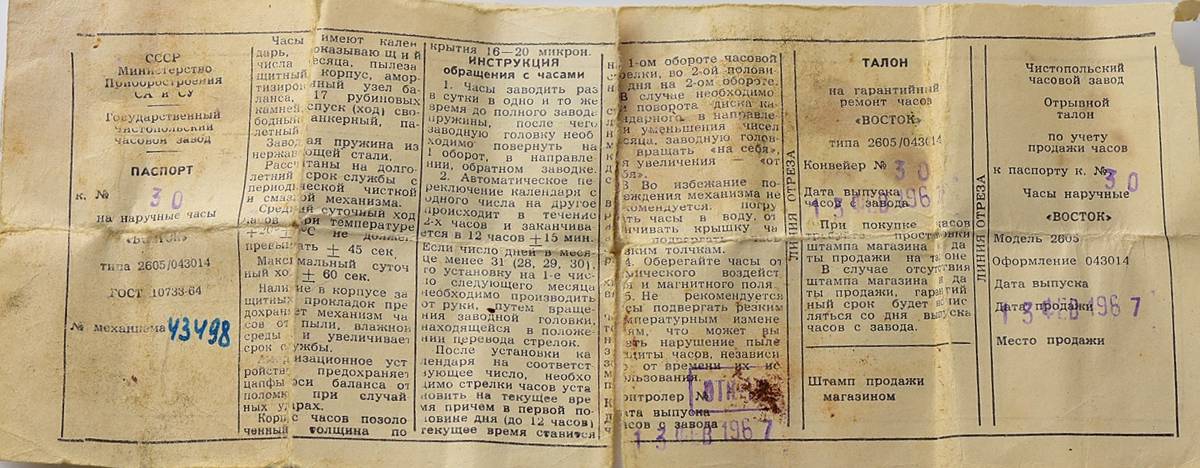 СССР
Министерство
Приборостроения
СА и СУ
Государственный
Чистопольский
часовой завод
ПАСПОРТ
к. №
30
на наручные часы
«ВОСТОК»
типа 2605/043014
ГОСТ 10733-64
№ механизма 43498
Часы имеют кален
дарь, показывающий
числа месяца, пылеза
щитный корпус, амор
тизированный узел ба
ланса, 17 рубиновых
камней, спуск (ход) сво
бодный анкерный, па
летный
Заводная пружина из
нержавеющей стали.
Рассчитаны на долго
летний срок службы с
периодической чисткой
и смазкой механизма.
Средний суточный ход
часов при температуре
°С не должен
превышать ± 45 сек.
Максимальный суточ
ный ход ± 60 сек.
Наличие в корпусе за
щитных прокладок пре
дохраняет механизм ча
сов от пыли, влажной
среды и увеличивает
срок службы.
Амортизационное уст
ройство предохраняет
цапфы оси баланса от
поломки при случай
ных ударах.
Корпус часов позоло
ченный толщина по
крытия 16—20 микрон.
ИНСТРУКЦИЯ
обращения с часами
1. Часы заводить раз
в сутки в одно и то же
время до полного завода
пружины, после чего
заводную головку необ
ходимо повернуть на
1 оборот, в направле
нии, обратном заводке.
2. Автоматическое пе
реключение календаря с
одного числа на другое
происходит в течение
2-х часов и заканчива
ется в 12 часов ± 15 мин.
Если число дней в меся
це менее 31 (28, 29, 30),
то установку на 1-е чис
ло следующего месяца
необходимо производить
от руки, путем враще
ния заводной головки,
находящейся в положе
нии перевода стрелок.
После установки ка
лендаря на соответст
вующее число, необхо
димо стрелки часов уста
новить на текущее вре
мя причем в первой по
ловине дня (до 12 часов)
текущее время ставится
на 1-ом обороте часовой
стрелки, во 2-ой полови
не дня на 2-ом обороте.
В случае необходимо
поворота диска ка
лендарного, в направле
нии уменьшения чисел
месяца, заводную голов
вращать «на себя»,
увеличения — «от
себя».
3 Во избежание по
вреждения механизма не
рекомендуется погру
жать часы в воду, от
винчивать крышку ча
подвергать
резким толчкам.
4. Оберегайте часы от
химического воздейст
и магнитного поля.
5. Не рекомендуется
часы подвергать резким
температурным измене
ниям, что может вы
звать нарушение пыле
защиты часов, независи
мо от времени их ис
пользования.
Контролер № ОТК
Дата выпуска
часов с завода
13 ФЕВ 1967
ЛИНИЯ ОТРЕЗА
ТАЛОН
на гарантийный
ремонт часов
«ВОСТОК»
типа 2605/043014
Конвейер № 30
Дата выпуска
часов с завода
13 ФЕВ 1967
При покупке часов
требуйте простановки
штампа магазина и да
ты продажи на талоне
В случае отсутствия
штампа магазина и да
ты продажи, гарантий
ный срок будет исчис
ляться со дня выпуска
часов с завода.
Штамп продажи
магазином
ЛИНИЯ ОТРЕЗА
Чистопольский
часовой завод
Отрывной
талон
по учету
продажи часов
к паспорту к. № 30
Часы наручные
«ВОСТОК»
Модель 2605
Оформление 043014
Дата выпуска
13 ФЕВ 1967
Дата продажи
Место продажи